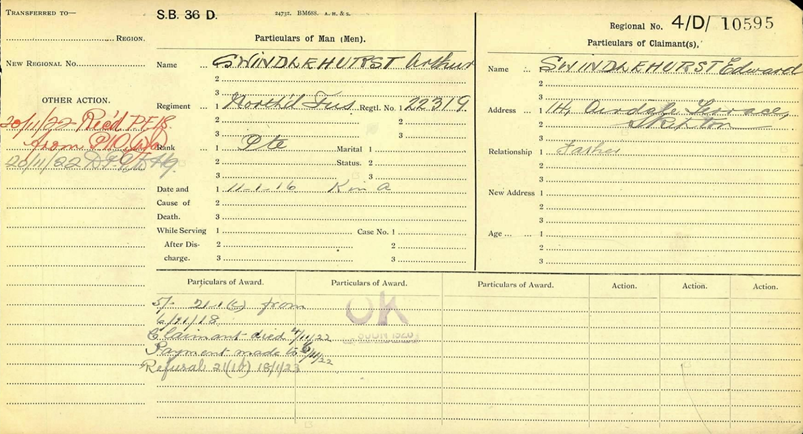 TRANSFERRED TO—
REGION.
NEW REGIONAL No.
OTHER ACTION.
20/11/22 Rec'd
from
20/11/22
S.B. 36 D.
24732. BM688. A. H. & S.
Regional No. 4/D/ 10595
Particulars of Man (Men).
Name 1 SWINDLEHURST Arthur
2
3
Regiment 1 North'd Fus. Regtl. No. 1 22319.
2 2
3 3
Rank 1 Pte Marital 1
2 Status. 2
3 3
Date and 1 11-1-16 K in A
Cause of 2
Death. 3
While Serving 1 Case No. 1
After Dis- 2 2
charge. 3 3
Particulars of Claimant(s).
Name ... 1 SWINDLEHURST Edward
2
3
Address ... 1 114, Airedale Terrace,
2 Skipton
3
Relationship 1 Father
2
3
New Address 1
2
3
Age ... ... 1
2
3
Particulars of Award. Particulars of Award. Particulars of Award. Action. Action. Action.
5/- 21-1(b) from
6/11/18
Claimant died 4/11/22
Payment made to 6/11/22
Refusal 21(1b) 18/1/23
OK
JUN 1920